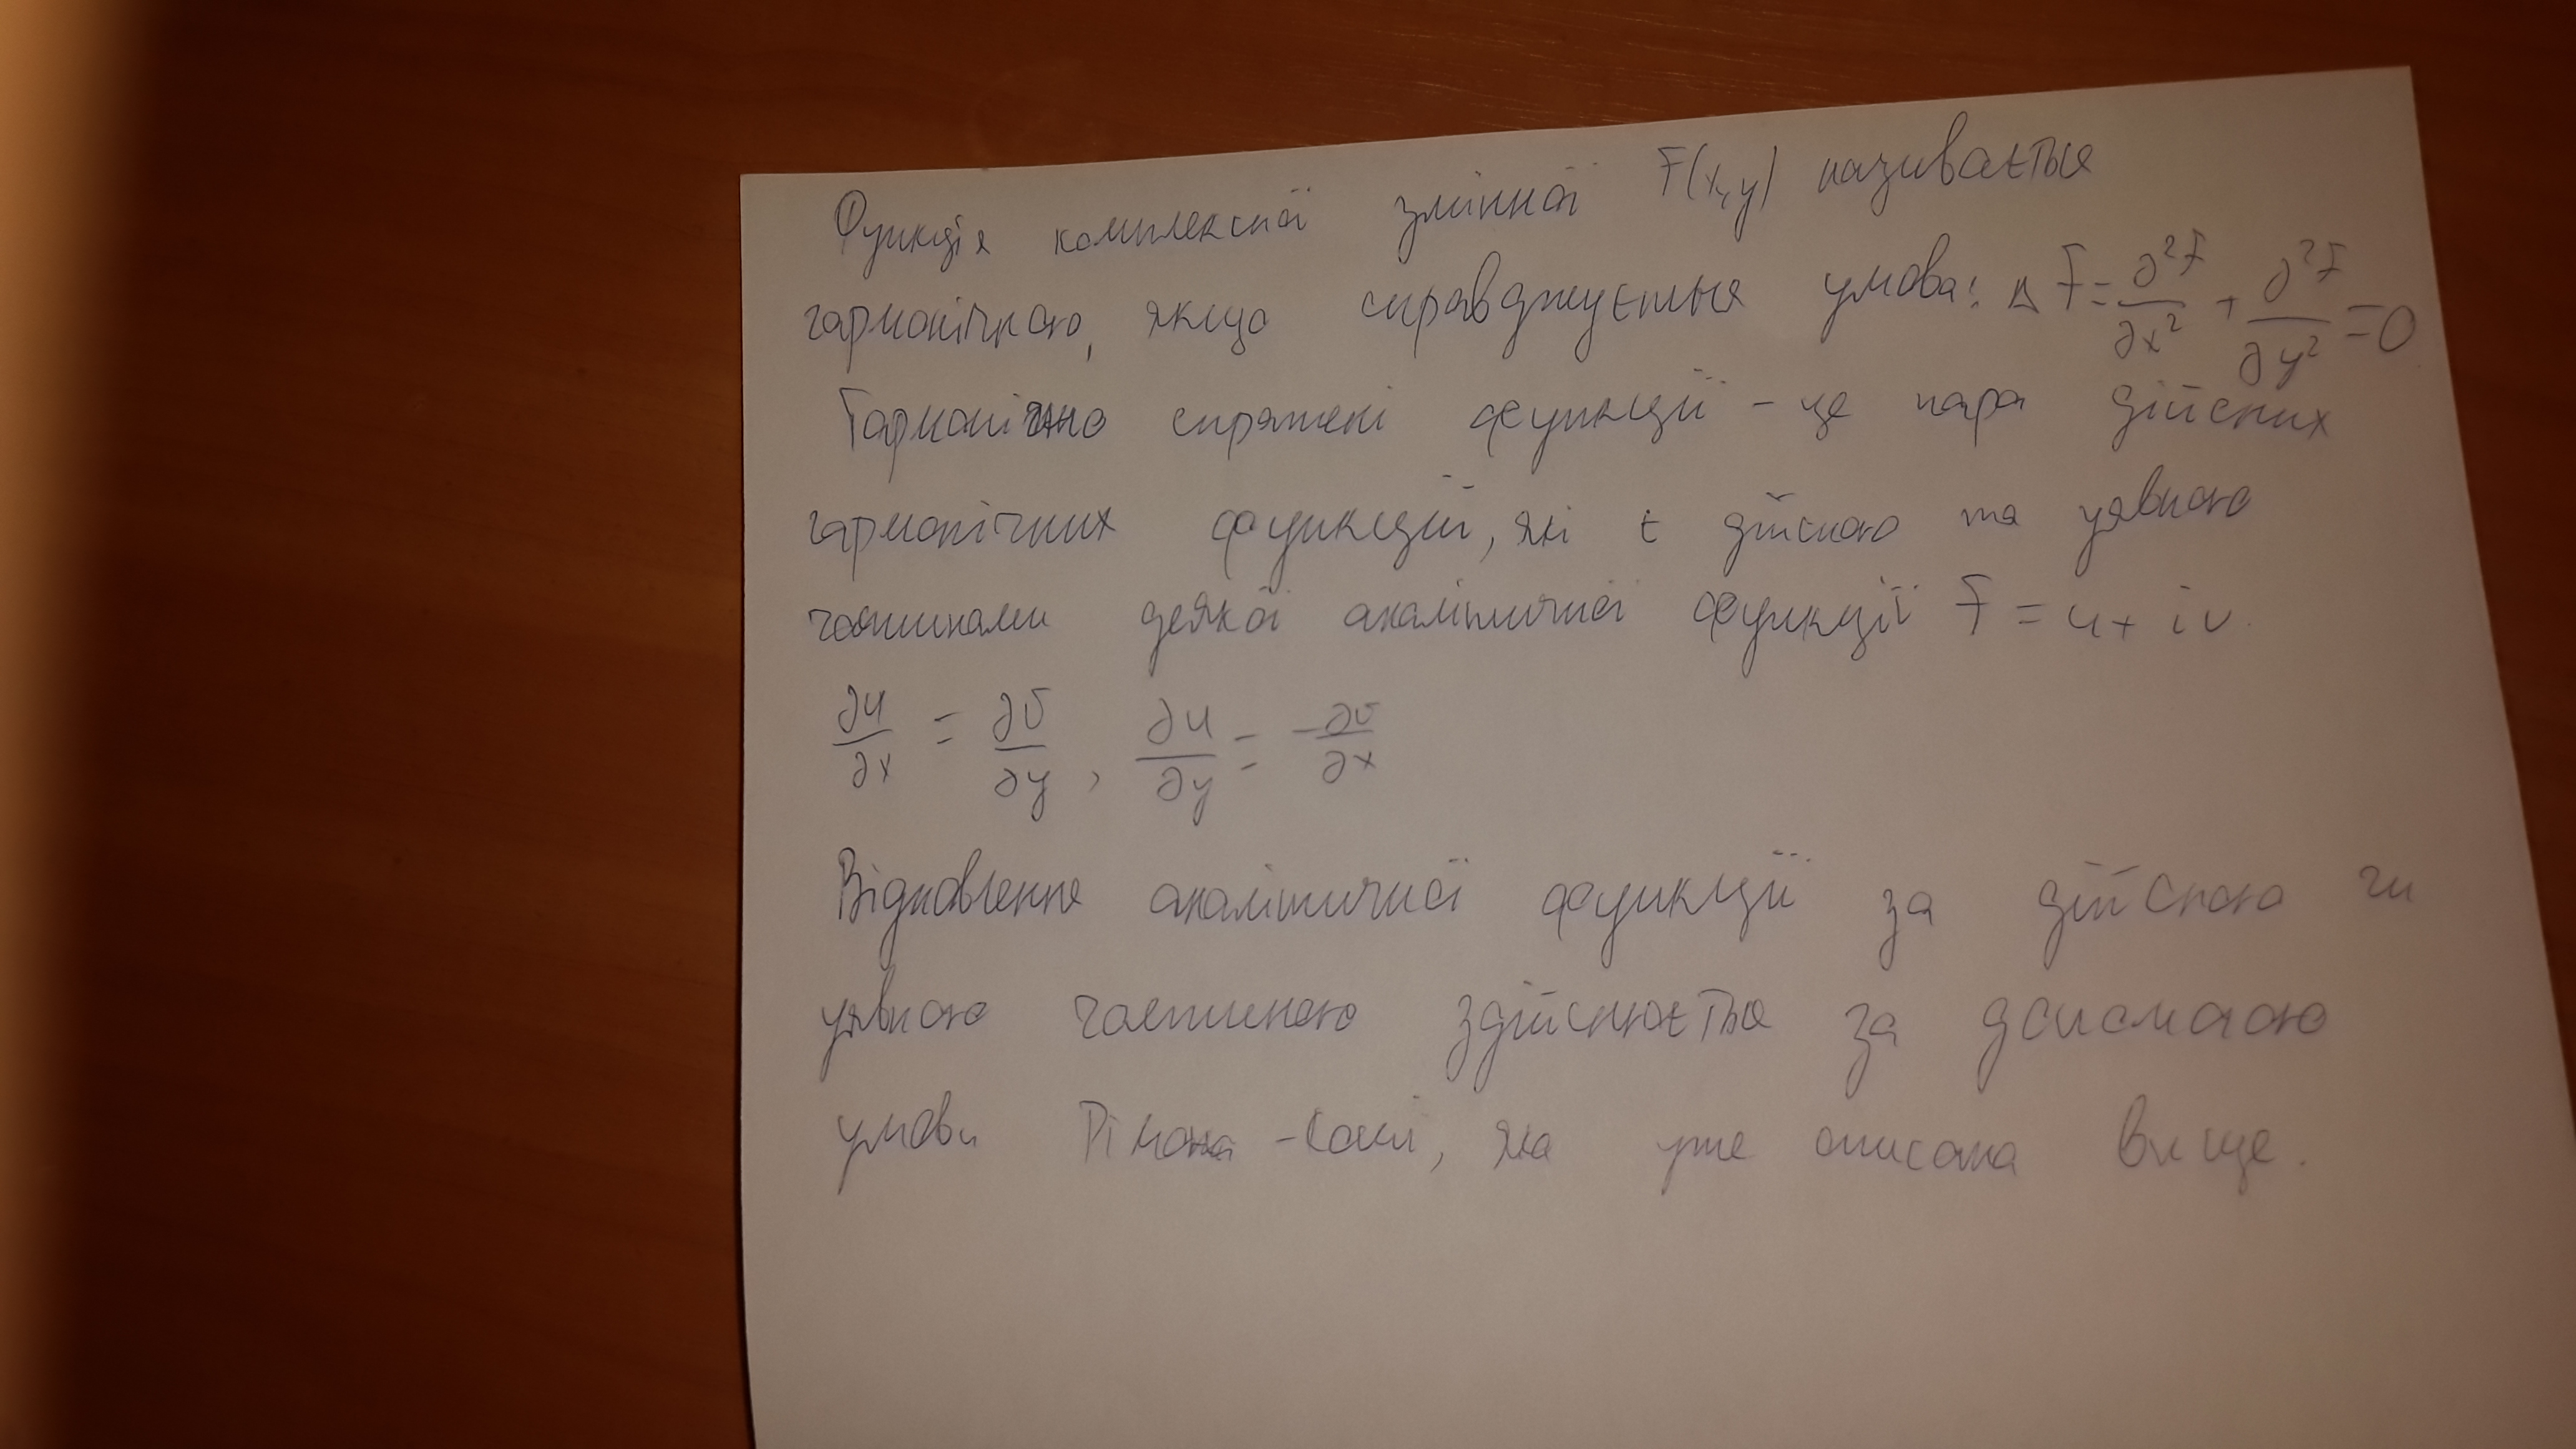 Функція комплексної змінної F(x,y) називається
гармонічною, якщо справджується умова: Δ F = ∂²F/∂x² + ∂²F/∂y² = 0
Гармонічно спряжені функції – це пара дійсних
гармонічних функцій, які є дійсною та уявною
частинами деякої аналітичної функції F = u + iv.
∂u/∂x = ∂v/∂y, ∂u/∂y = -∂v/∂x
Відновлення аналітичної функції за дійсною чи
уявною частиною здійснюється за допомогою
умови Рімана-Коші, яка уже описана вище.